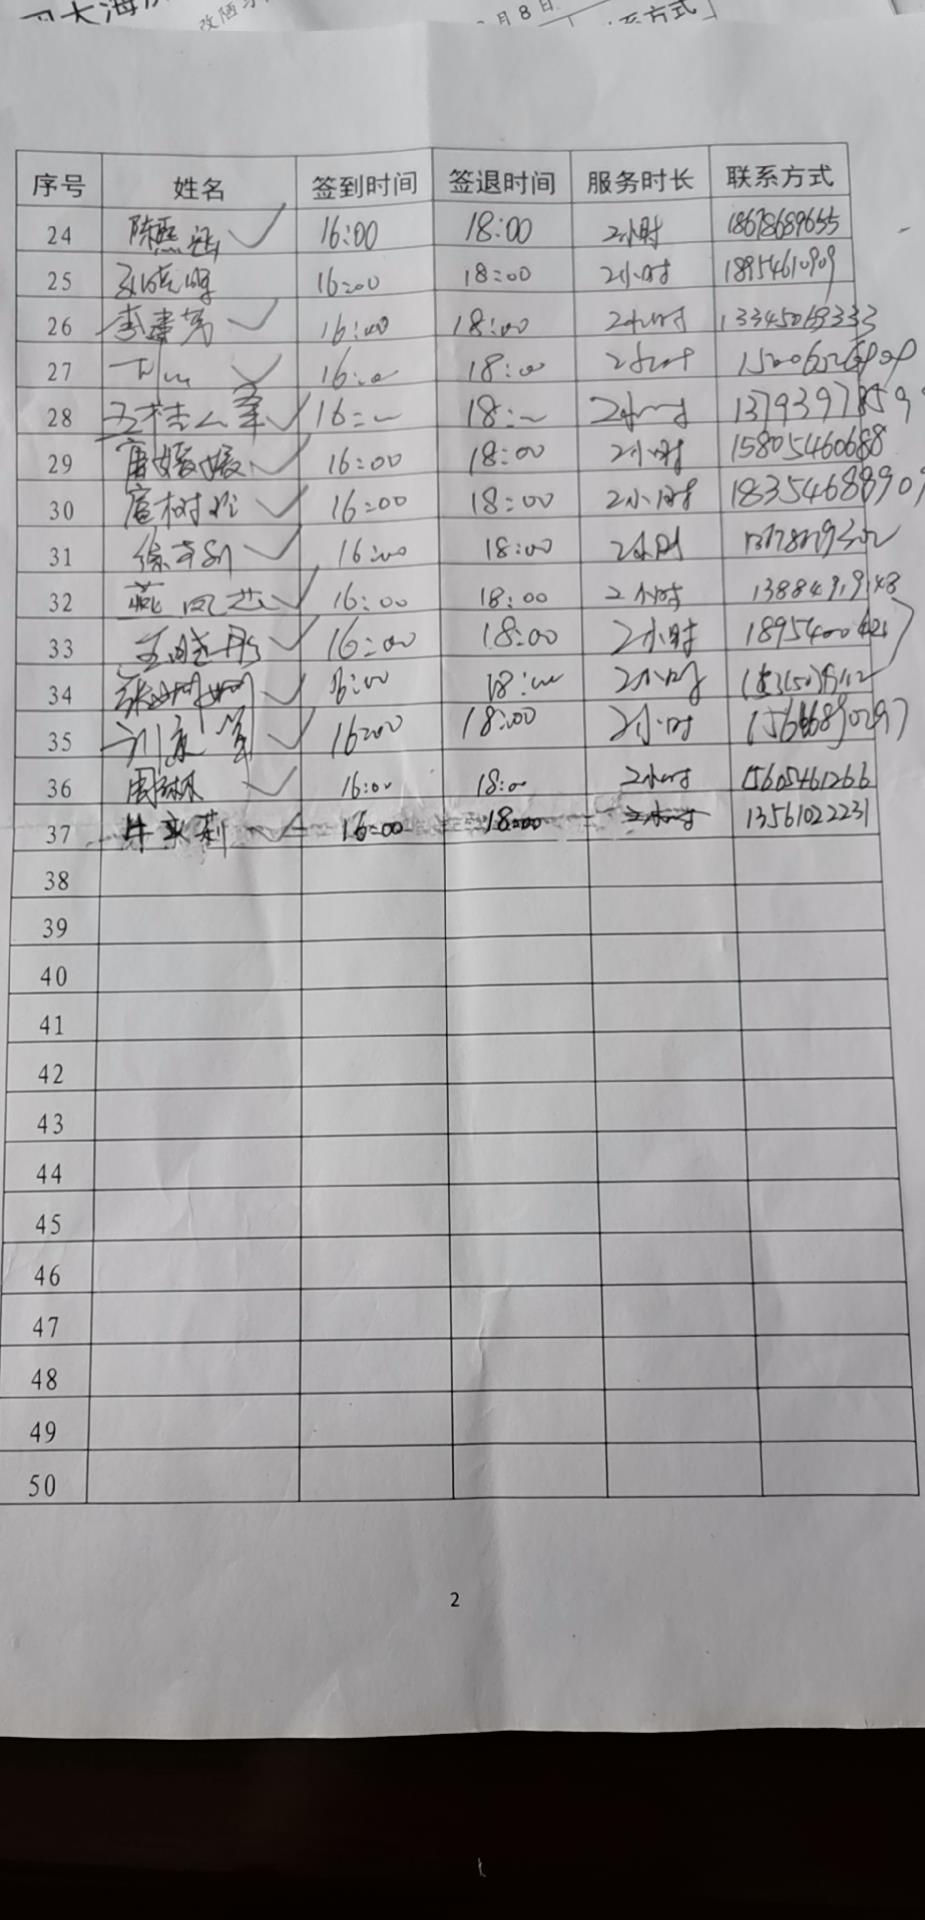 改陋习
月8日
联系方式
序号 姓名 签到时间 签退时间 服务时长 联系方式
24 陈熙涵 16:00 18:00 2小时 18678689655
25 16:00 18:00 2小时 18954610909
26 李春芳 16:00 18:00 2小时 13345069333
27 16:00 18:00 2小时
28 16:00 18:00 2小时 1379397859
29 唐媛媛 16:00 18:00 2小时 15805460688
30 16:00 18:00 2小时 18354688909
31 16:00 18:00 2小时
32 燕凤杰 16:00 18:00 2小时 13884919148
33 王晓彤 16:00 18:00 2小时
34 张姗姗 16:00 18:00 2小时
35 16:00 18:00 2小时
36 周琳 16:00 18:00 2小时 15605461266
37 16:00 18:00 2小时 13561022231
38
39
40
41
42
43
44
45
46
47
48
49
50
2